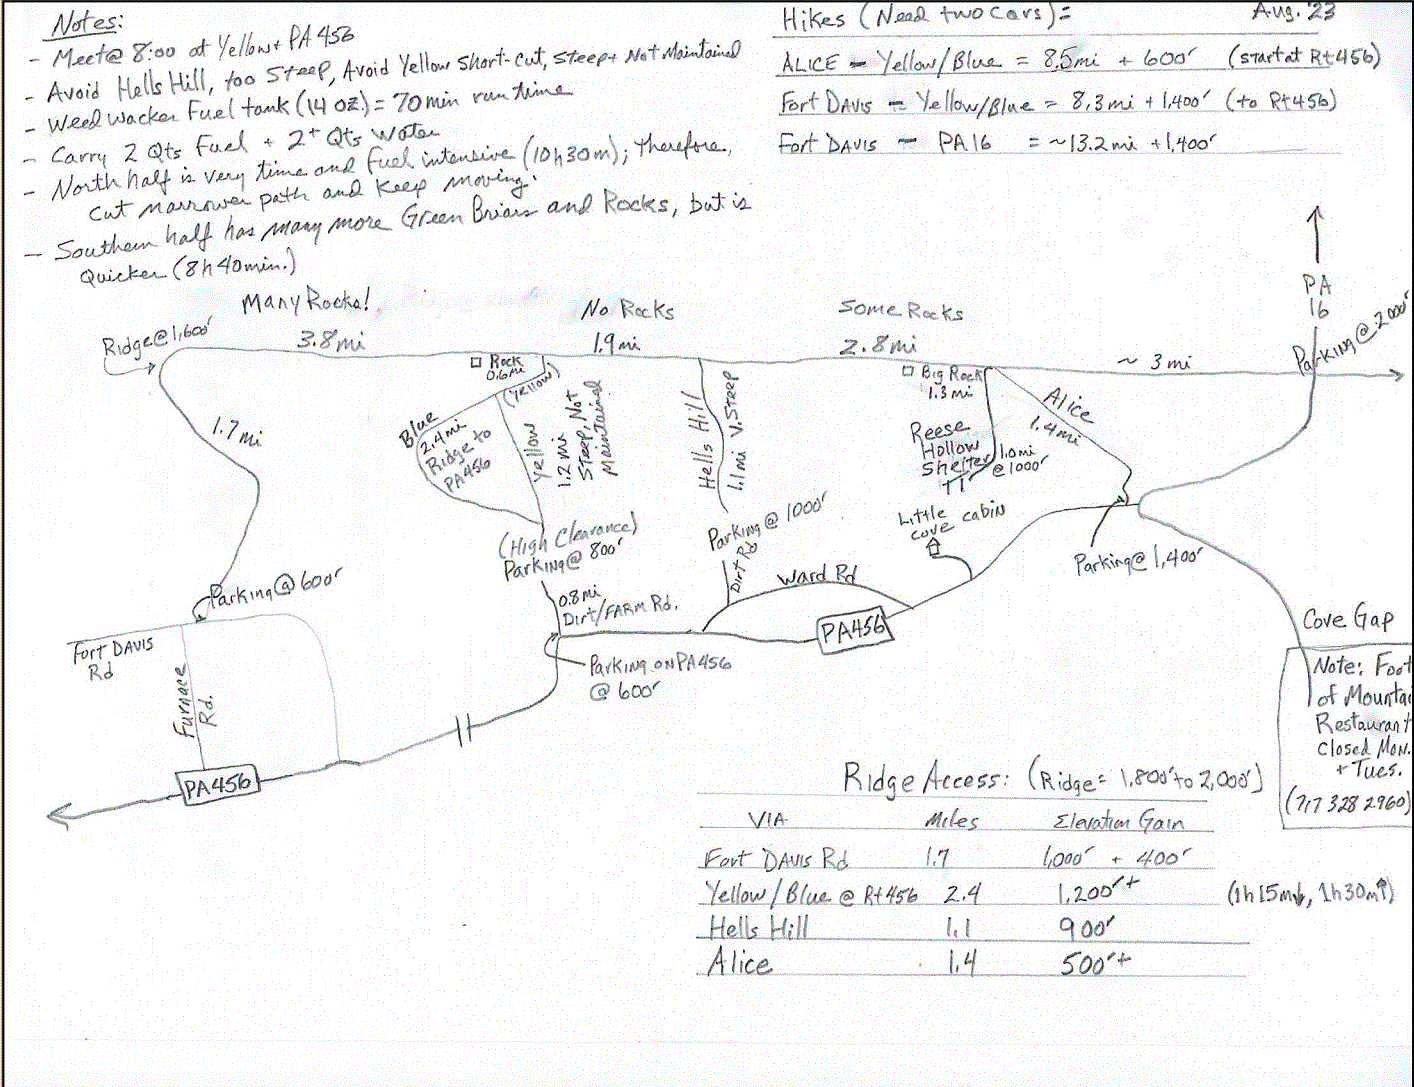 Notes:
- Meet@ 8:00 at Yellow+ PA 456
- Avoid Hells Hill, too Steep, Avoid Yellow Short-cut, Steep+ Not Maintained
- Weed Wacker Fuel tank (14 oz) = 70 min run time
- Carry 2 Qts Fuel + 2+ Qts Water
- North half is very time and fuel intensive (10h30m); therefore,
cut narrower path and keep moving.
- Southern half has many more Green Briars and Rocks, but is
Quicker (8h40min.)
Hikes (Need two cars)=
Aug. '23
ALICE - Yellow/Blue = 8.5mi + 600' (start at Rt456)
Fort DAVIS - Yellow/Blue = 8.3mi + 1,400' (to Rt456)
Fort DAVIS - PA16 = ~13.2mi + 1,400'
PA
16
Parking@ 2000'
Many Rocks!
No Rocks
Some Rocks
Ridge@1,600'
3.8mi
1.9mi
2.8mi
~ 3mi
Rock
0.6mi
(Yellow)
Big Rock
1.3mi
Blue
2.4mi
Ridge to
PA456
Yellow
1.2mi
Steep, Not
Maintained
Hells Hill
1.1mi V.Steep
Alice
1.4mi
Reese
Hollow
Shelter
1.0mi
@1000'
1.7mi
(High Clearance)
Parking@ 800'
Parking@ 1000'
Dirt Rd
Little
cove cabin
Parking@ 1,400'
Parking@600'
0.8mi
Dirt/FARM Rd.
Ward Rd
PA456
Fort DAVIS
Rd
Furnace
Rd.
Parking on PA456
@ 600'
PA456
Cove Gap
Note: Foot
of Mountai
Restaurant
Closed Mon.
+ Tues.
(717 328 2960)
Ridge Access: (Ridge= 1,800' to 2,000')
VIA Miles Elevation Gain
Fort DAVIS Rd 1.7 1,000' + 400'
Yellow/Blue @ Rt456 2.4 1,200'+ (1h15m↓, 1h30m↑)
Hells Hill 1.1 900'
Alice 1.4 500'+